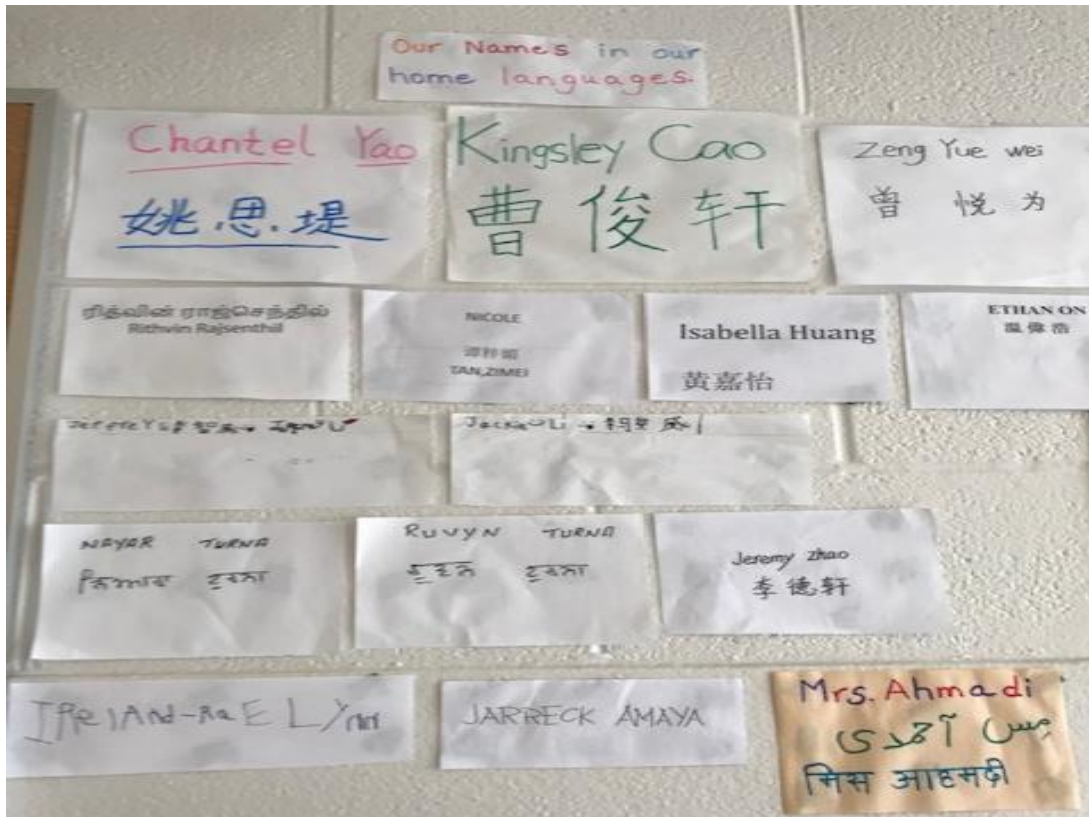 Our Names in our
home languages.
Chantel Yao
姚思堤
Kingsley Cao
曹俊轩
Zeng Yue wei
曾 悦 为
ரித்வின் ராஜ்செந்தில்
Rithvin Rajsenthil
NICOLE
TAN,ZIMEI
Isabella Huang
黄嘉怡
ETHAN ON
温偉浩
NAYAR TURNA
ਟੁਰਨਾ
RUVYN TURNA
ਟੁਰਨਾ
Jeremy zhao
李德轩
IRelAnd-RaELynn
JARRECK AMAYA
Mrs. Ahmadi
مس آحمدی
मिस आहमदी